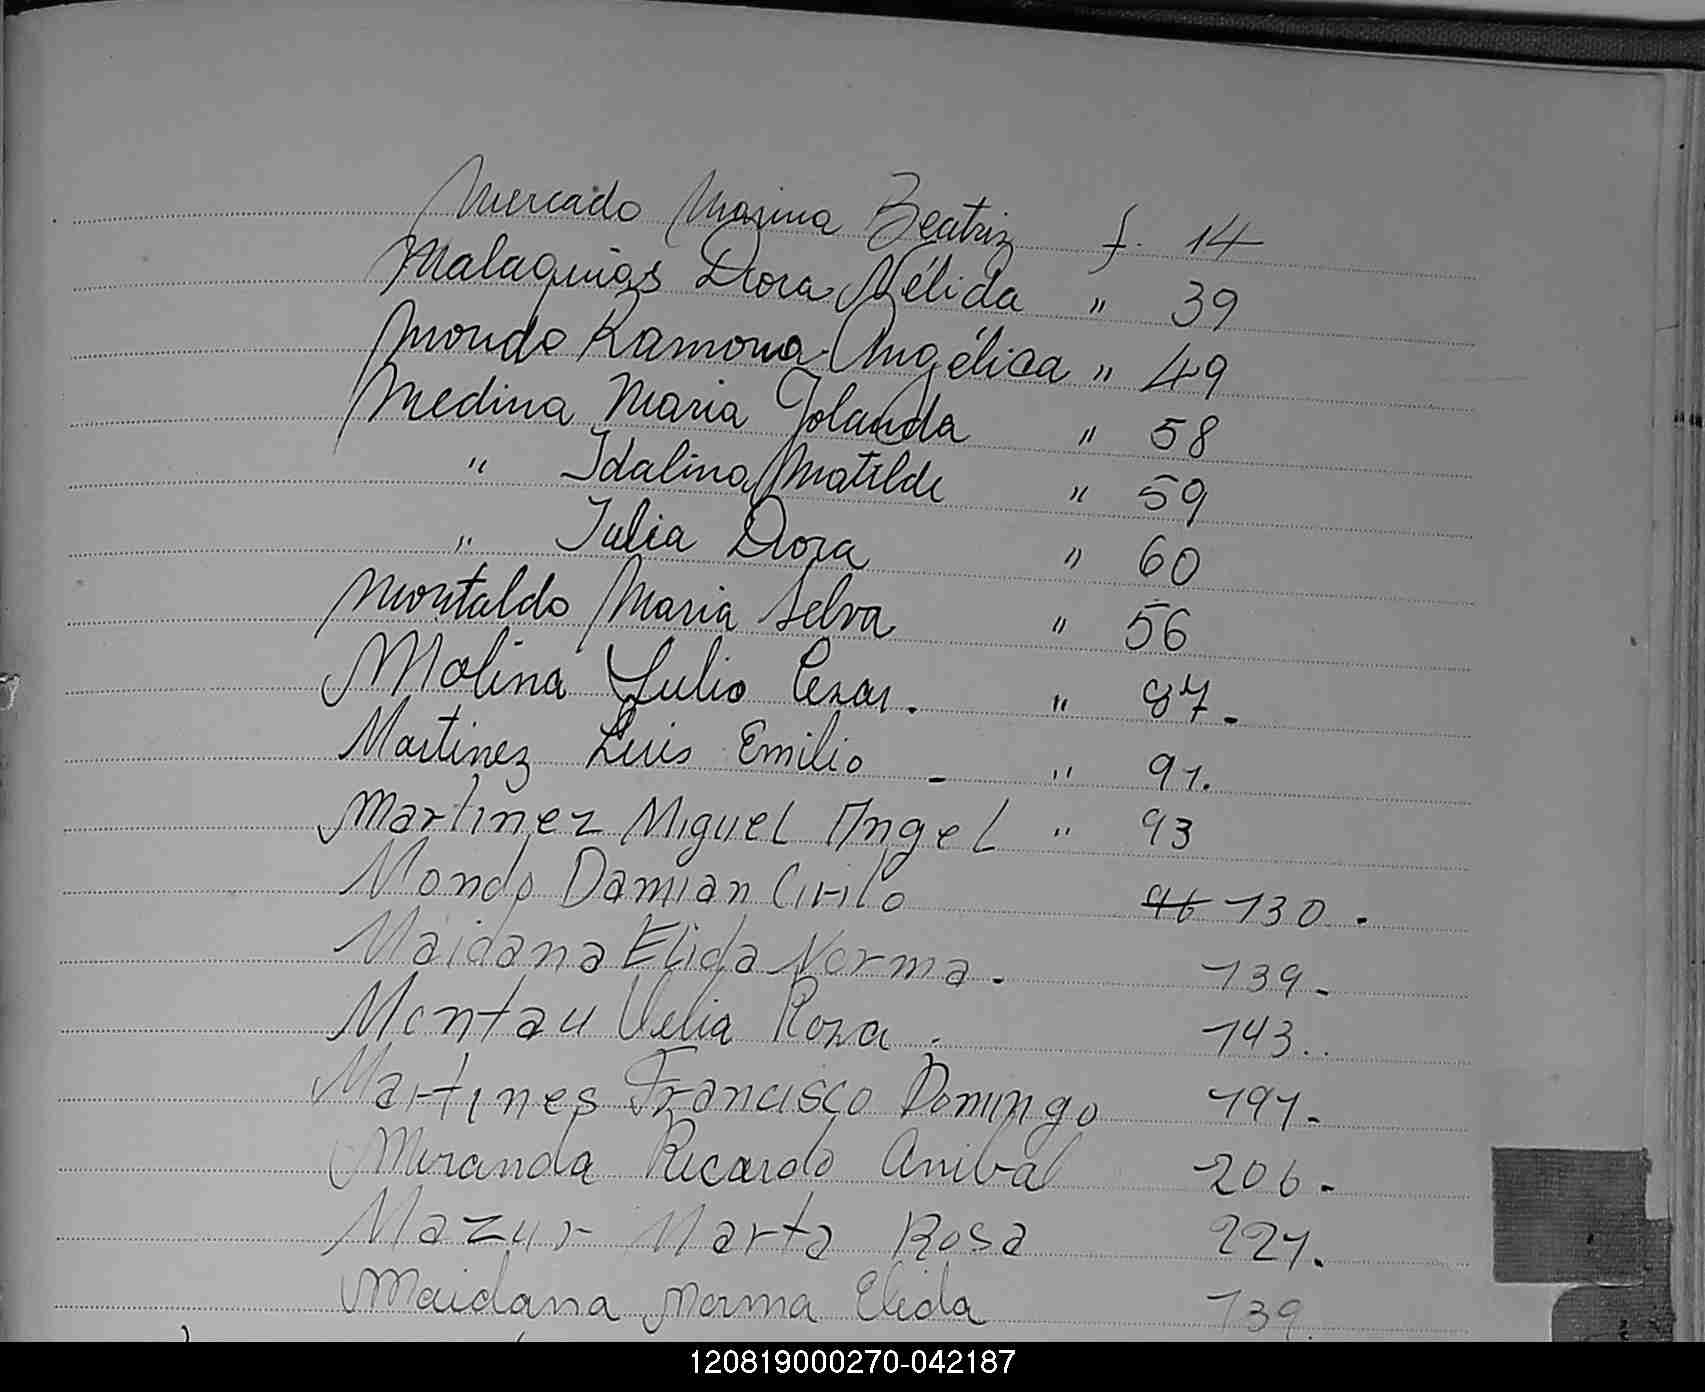 Mercado Marina Beatriz f. 14
Malaquias Dora Nélida " 39
Mondo Ramona Angélica " 49
Medina Maria Yolanda " 58
" Idalina Matilde " 59
" Julia Dora " 60
Montaldo Maria Selva " 56
Molina Julio Cezar. " 87.
Martinez Luis Emilio - " 91.
Martinez Miguel Angel " 93
Mondo Damian Cirilo 96 130.
Maidana Elida Norma. 139.
Montau Velia Roza. 143..
Martines Francisco Domingo 191.
Miranda Ricardo Anibal 206.
Mazur Marta Rosa 221.
Maidana Norma Elida 139.
120819000270-042187